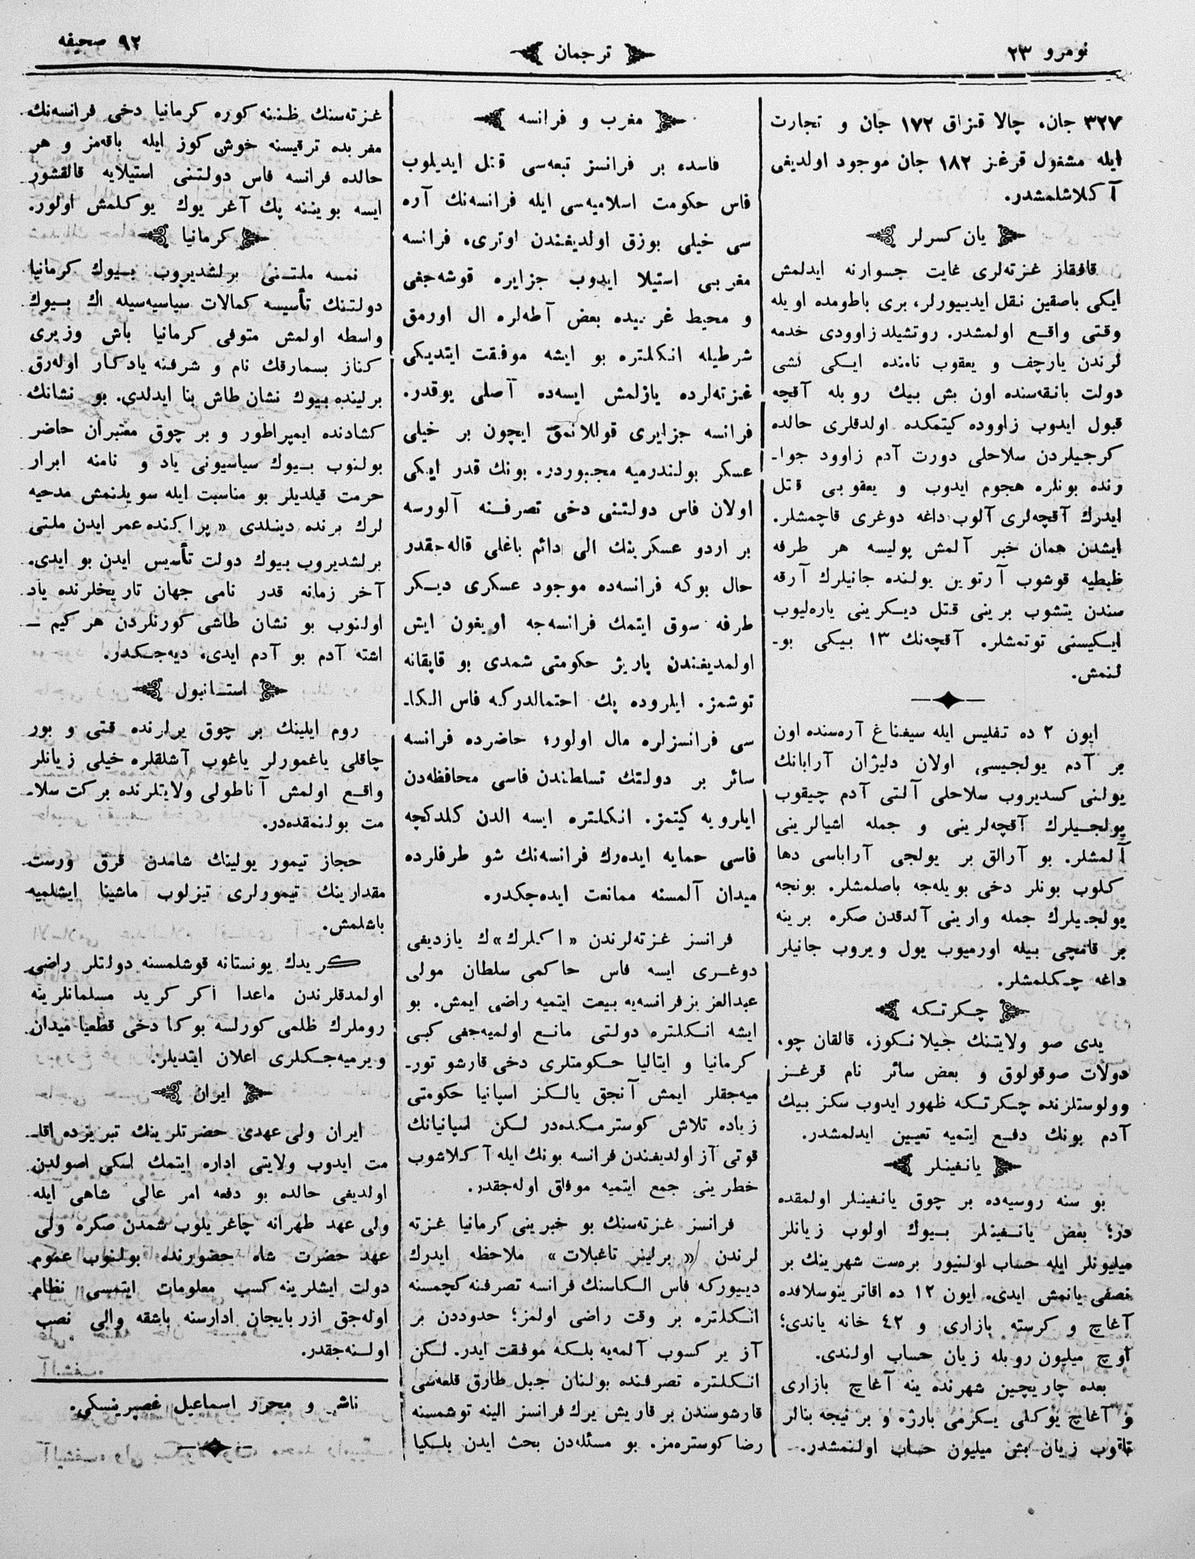 نومرو ٢٣
ترجمان
٩٢ صحیفه
٣٢٧ جان، چالا قزاق ١٧٢ جان و تجارت
ایله مشغول قرغز ١٨٢ جان موجود اولدیغی
آكلاشلمشدر.
یان كسرلر
قافقاز غزته‌لری غایت جسورانه ایدلمش
ایكی باصقین نقل ایدییورلر، بری باطومده اویله
وقتی واقع اولمشدر. روتشیلد زاوودی خدمه
لرندن یارچف و یعقوب نامنده ایكی نشی
دولت بانقه‌سنده اون بش بیك روبله آقچه
قبول ایدوب زاووده كیتمكده اولدقلری حالده
كرجیلردن سلاحلی دورت آدم زاوود جوا-
رنده بونلره هجوم ایدوب و یعقوبی قتل
ایدرك آقچه‌لری آلوب داغه دوغری قاچمشلر.
ایشدن همان خبر آلمش پولیسه هر طرفه
ظبطیه قوشوب آرتوین یولنده جانیلرك آرقه
سندن یتشوب برینی قتل دیكرینی یاره‌لیوب
ایكیسنی توتمشلر. آقچه‌نك ١٣ بیكی بو-
لنمش.
ایون ٢ ده تفلیس ایله سیغناغ آره‌سنده اون
بر آدم یولجیسی اولان دلیژان آرابانك
یولنی كسدیروب سلاحلی آلتی آدم چیقوب
یولجیلرك آقچه‌لرینی و جمله اشیالرینی
آلمشلر. بو آرالق بر یولجی آراباسی دها
كلوب بونلر دخی بویله‌جه باصلمشلر. بونجه
یولجیلرك جمله وارینی آلدقدن صكره برینه
بر قامچی بیله اورمیوب یول ویروب جانیلر
داغه چكلمشلر.
چكرتكه
یدی صو ولایتنك جیلانكوز، قالقان چو،
دولات صوقولوق و بعض سائر نام قرغز
وولوستلرنده چكرتكه ظهور ایدوب سكز بیك
آدم بونك دفع ایتمیه تعیین ایدلمشدر.
یانغینلر
بو سنه روسیه‌ده بر چوق یانغینلر اولمقده
در؛ بعض یانغینلر بیوك اولوب زیانلر
میلیونلر ایله حساب اولنیور برست شهرینك بر
نصفی یانمش ایدی. ایون ١٢ ده اقاترینوسلافده
آغاچ و كرسته بازاری و ٤٢ خانه یاندی؛
اوچ میلیون روبله زیان حساب اولندی.
بعده چاریچین شهرنده ینه آغاچ بازاری
و آغاچ یوكلی یكرمی بارژه و بر نیجه بنالر
یانوب زیان بش میلیون حساب اولنمشدر.
مغرب و فرانسه
فاسده بر فرانسز تبعه‌سی قتل ایدیلوب
فاس حكومت اسلامیه‌سی ایله فرانسه‌نك آره
سی خیلی بوزق اولدیغندن اوتری، فرانسه
مغربی استیلا ایدوب جزایره قوشه‌جغی
و محیط غربیده بعض آطه‌لره ال اورمق
شرطیله انكلتره بو ایشه موفقت ایتدیكی
غزته‌لرده یازلمش ایسه‌ده آصلی یوقدر.
فرانسه جزایری قوللانمق ایچون بر خیلی
عسكر بولندرمیه مجبوردر. بونك قدر ایكی
اولان فاس دولتنی دخی تصرفنه آلورسه
بر اردو عسكرینك الی دائم باغلی قاله‌جقدر
حال بوكه فرانسه‌ده موجود عسكری دیكر
طرفه سوق ایتمك فرانسه‌جه اویغون ایش
اولمدیغندن پاریژ حكومتی شمدی بو قاپقانه
توشمز. ایلروده پك احتمالدركه فاس الكا-
سی فرانسزلره مال اولور؛ حاضرده فرانسه
سائر بر دولتك تسلطندن فاسی محافظه‌دن
ایلرویه كیتمز. انكلتره ایسه الدن كلدكچه
فاسی حمایه ایده‌رك فرانسه‌نك شو طرفلرده
میدان آلمسنه ممانعت ایده‌جكدر.
فرانسز غزته‌لرندن «اكلرك»ك یازدیغی
دوغری ایسه فاس حاكمی سلطان مولی
عبدالعزیز فرانسه‌یه بیعت ایتمیه راضی ایمش. بو
ایشه انكلتره دولتی مانع اولمیه‌جغی كبی
كرمانیا و ایتالیا حكومتلری دخی قارشو تور-
میه‌جقلر ایمش آنجق یالكز اسپانیا حكومتی
زیاده تلاش كوسترمكده‌در لكن اسپانیانك
قوتی آز اولدیغندن فرانسه بونك ایله آكلاشوب
خطرینی جمع ایتمیه موفاق اوله‌جقدر.
فرانسز غزته‌سنك بو خبرینی كرمانیا غزته
لرندن «برلینر تاغبلات» ملاحظه ایدرك
دییوركه فاس الكاسنك فرانسه تصرفنه كچمسنه
انكلتره بر وقت راضی اولمز؛ حدوددن بر
آز یر كسوب آلمه‌یه بلكه موفقت ایدر. لكن
انكلتره تصرفنده بولنان جبل طارق قلعه‌سی
قارشوسندن بر قاریش یرك فرانسز الینه توشمسنه
رضا كوسترمز. بو مسئله‌دن بحث ایدن بلكیا
غزته‌سنك ظننه كوره كرمانیا دخی فرانسه‌نك
مغربده ترقیسنه خوش كوز ایله باقه‌مز و هر
حالده فرانسه فاس دولتنی استیلایه قالقشور
ایسه بویننه پك آغر یوك یوكلمش اولور.
كرمانیا
نمسه ملتنی برلشدیروب بیوك كرمانیا
دولتنك تأسیسه كمالات سیاسیه‌سیله اك بیوك
واسطه اولمش متوفی كرمانیا باش وزیری
كناز بسمارقك نام و شرفنه یادكار اوله‌رق
برلینده بیوك نشان طاش بنا ایدلدی. بو نشانك
كشادنده ایمپراطور و بر چوق معتبران حاضر
بولنوب بیوك سیاسیونی یاد و نامنه ابراز
حرمت قیلدیلر بو مناسبت ایله سویلنمش مدحیه
لرك برنده دینلدی «پراكنده عمر ایدن ملتی
برلشدیروب بیوك دولت تأسیس ایدن بو ایدی.
آخر زمانه قدر نامی جهان تاریخلرنده یاد
اولنوب بو نشان طاشی كورنلردن هر كیم —
اشته آدم بو آدم ایدی، دیه‌جكدر.
استانبول
روم ایلینك بر چوق یرلرنده قتی و بور
چاقلی یاغمورلر یاغوب آشلقلره خیلی زیانلر
واقع اولمش آناطولی ولایتلرنده بركت سلا-
مت بولنمقده‌در.
حجاز تیمور یولینك شامدن قرق ورست
مقدارینك تیمورلری تیزلوب ماشینا ایشلمیه
باشلمش.
كریدك یونستانه قوشلمسنه دولتلر راضی
اولمدقلرندن ماعدا اكر كرید مسلمانلرینه
روملرك ظلمی كورلسه بوكا دخی قطعیا میدان
ویرمیه‌جكلری اعلان ایتدیلر.
ایران
ایران ولی عهدی حضرتلرینك تبریزده اقا-
مت ایدوب ولایتی اداره ایتمك اسكی اصولدن
اولدیغی حالده بو دفعه امر عالی شاهی ایله
ولی عهد طهرانه چاغریلوب شمدن صكره ولی
عهد حضرت شاه حضورنده بولنوب عموم
دولت ایشلرینه كسب معلومات ایتمسی نظام
اوله‌جق ازربایجان ادارسنه باشقه والی نصب
اولنه‌جقدر.
ناشر و محرر اسماعیل غصپرینسكی.